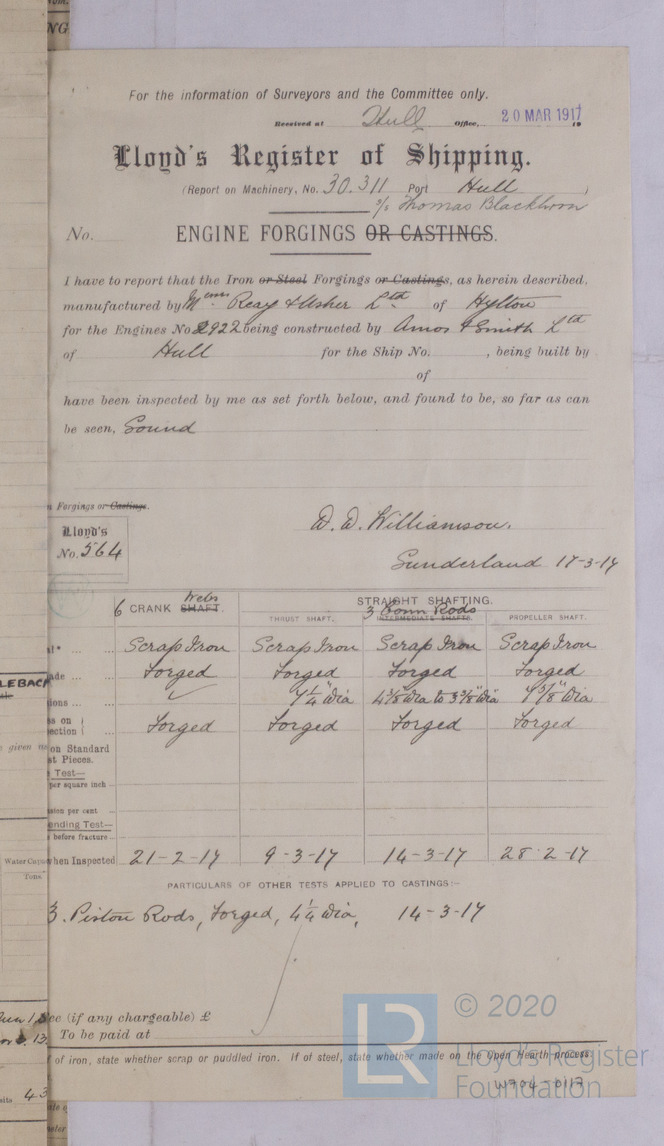 For the information of Surveyors and the Committee only.
Received at Hull Office, 20 MAR 1917 19
Lloyd's Register of Shipping.
(Report on Machinery, No. 30.311 Port Hull )
S/S Thomas Blackhorn
No. ENGINE FORGINGS OR CASTINGS.
I have to report that the Iron or Steel Forgings or Castings, as herein described,
manufactured by Messrs Reay & Usher Ltd of Hylton
for the Engines No 2922 being constructed by Amos & Smith Ltd
of Hull for the Ship No. , being built by
of
have been inspected by me as set forth below, and found to be, so far as can
be seen, Sound
n Forgings or Castings.
Lloyd's
No. 564
D. D. Williamson.
Sunderland 17-3-17
6 CRANK SHAFT. Webs STRAIGHT SHAFTING.
THRUST SHAFT. 3 Conn Rods INTERMEDIATE SHAFTS. PROPELLER SHAFT.
al* ... ... Scrap Iron Scrap Iron Scrap Iron Scrap Iron
ade ... ... Forged Forged Forged Forged
ions ... ... ✓ 7 1/4" Dia 4 3/8" Dia to 3 3/8" Dia 7 5/8" Dia
ss on
ection ... Forged Forged Forged Forged
on Standard
st Pieces.
Test—
per square inch
sion per cent ...
ending Test—
before fracture...
When Inspected 21-2-17 9-3-17 14-3-17 28-2-17
PARTICULARS OF OTHER TESTS APPLIED TO CASTINGS:—
3. Piston Rods, Forged, 4 1/4 Dia, 14-3-17
ee (if any chargeable) £
To be paid at
f of iron, state whether scrap or puddled iron. If of steel, state whether made on the Open Hearth process.
W704-0117
NG
LEBACK
e given
Water Capac
Tons
43
LR
© 2020
Lloyd's Register
Foundation